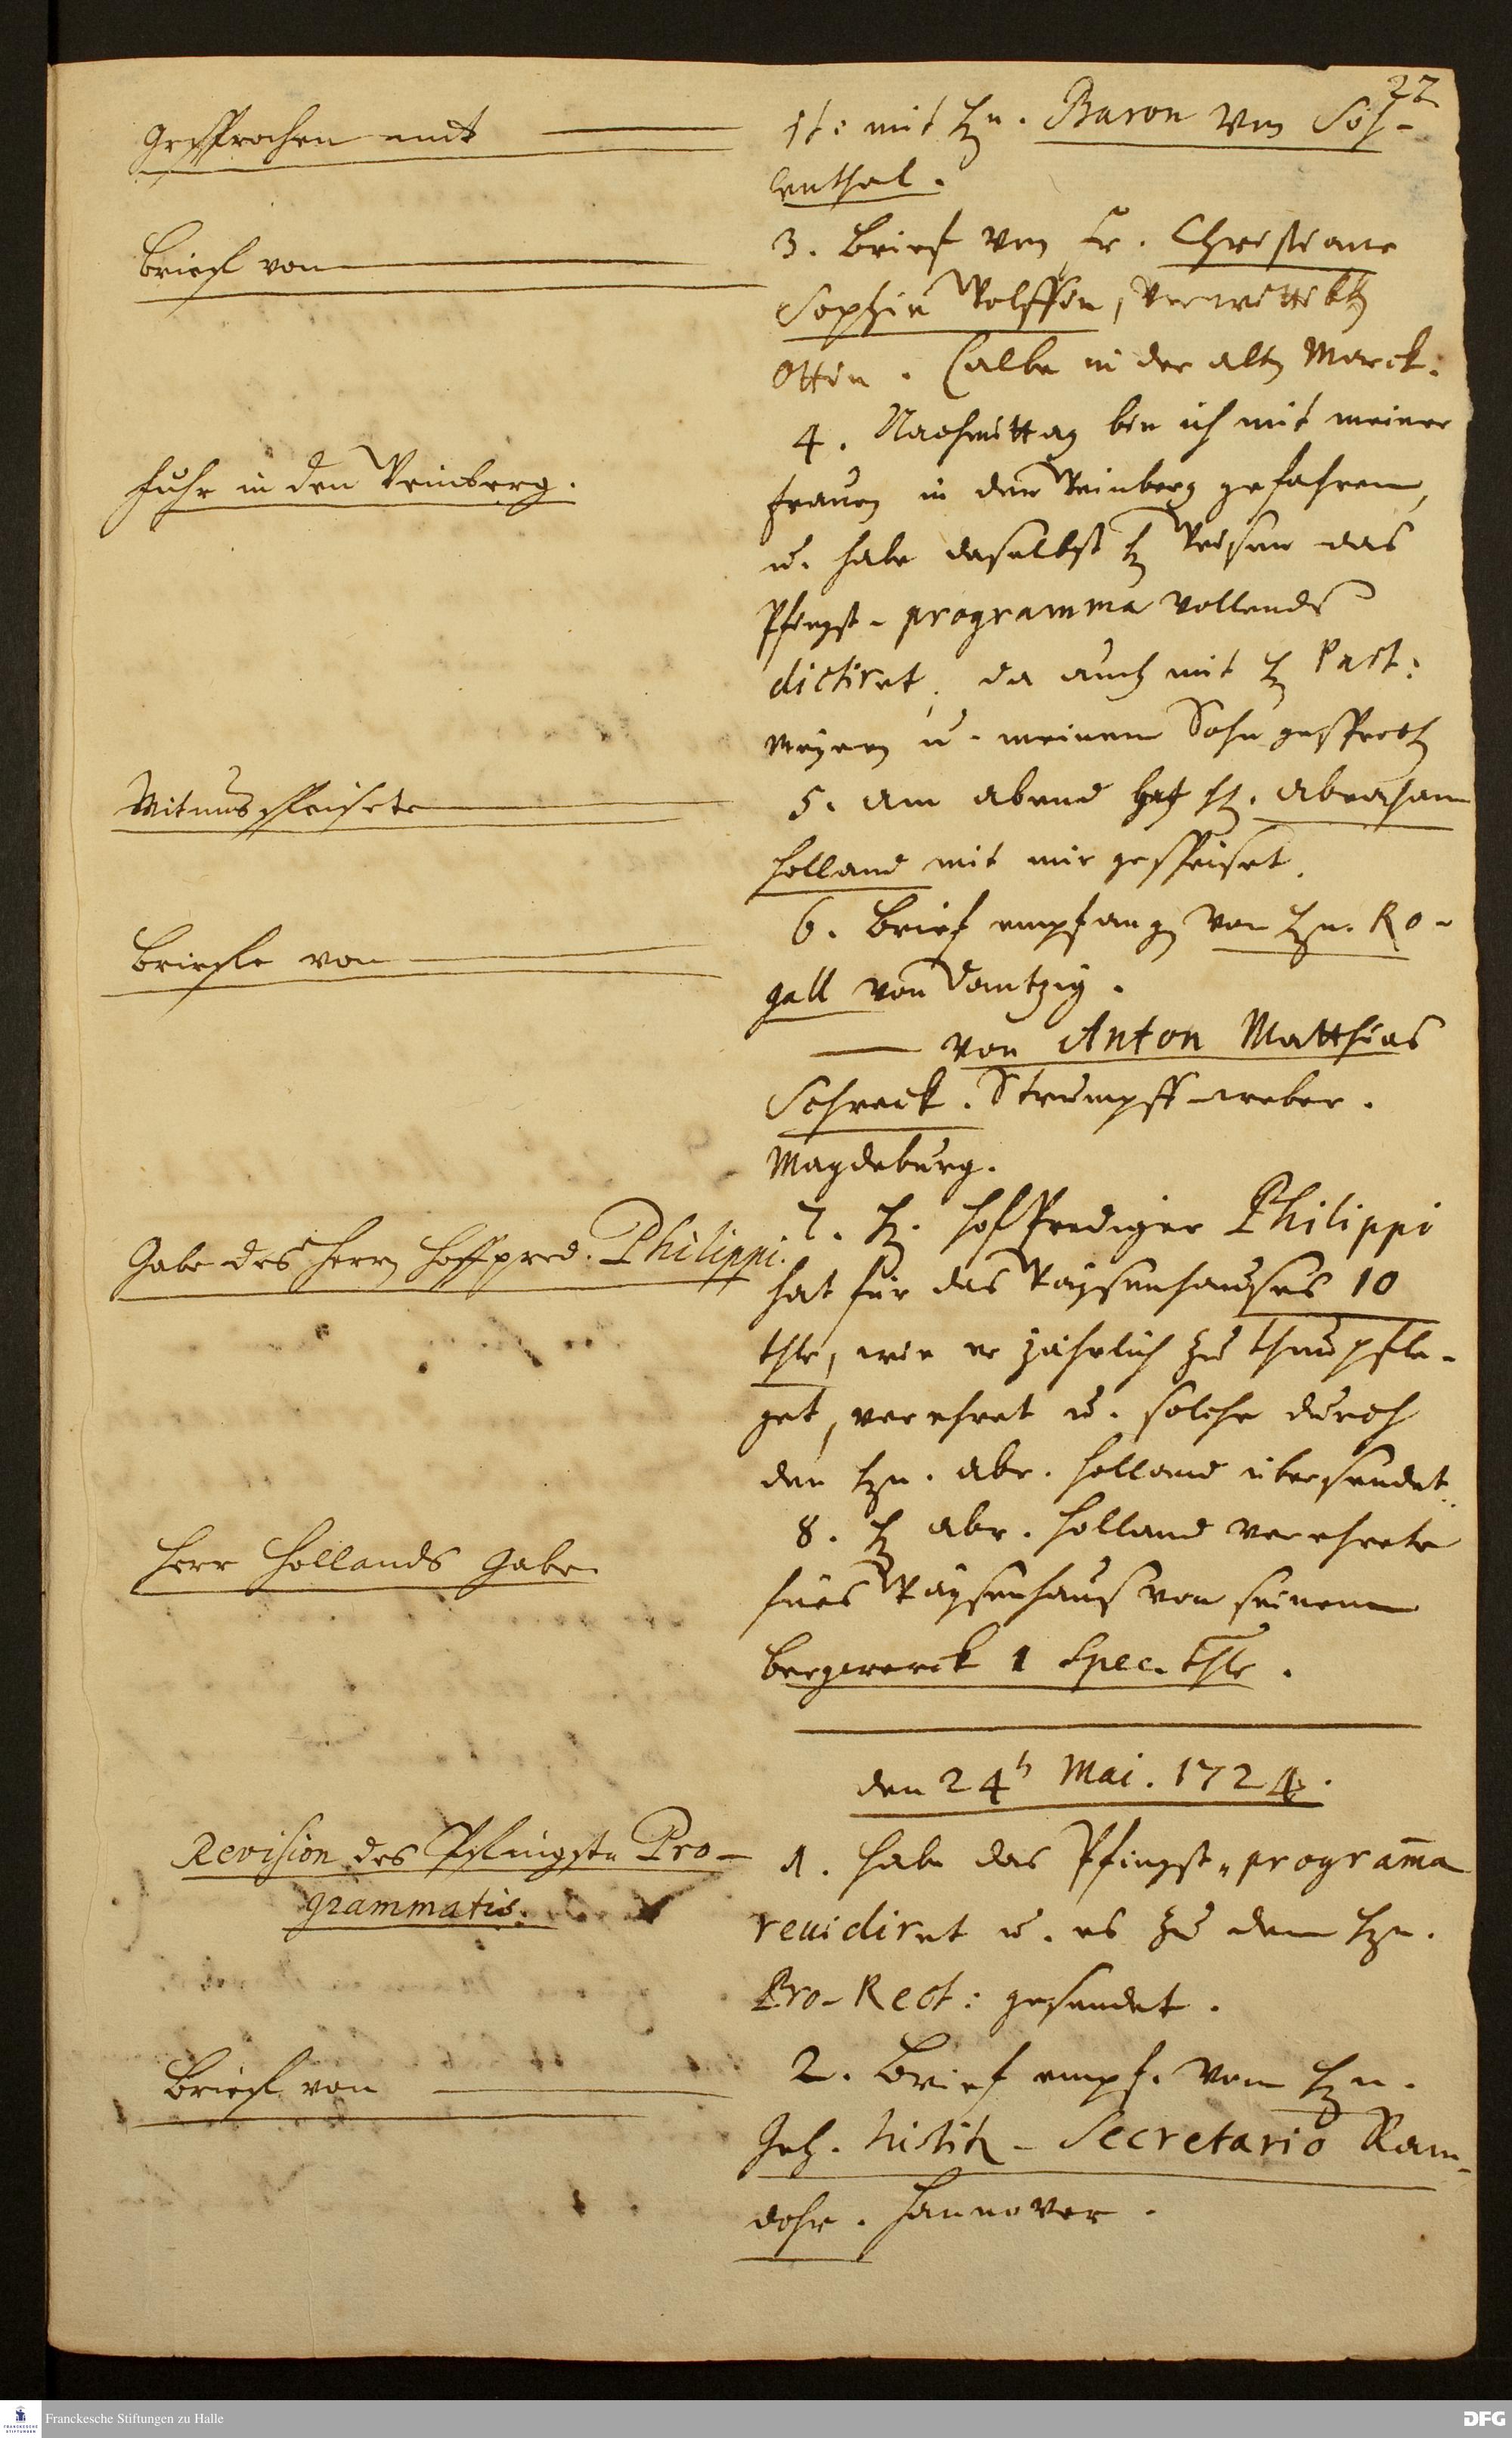 22
Gesprochen mit
ist: mit Hn. Baron von Söh-
lenthal.
Brief von
3. Brief von Fr. Christiane
Sophie Wolffin, verwittibte
Ottin. Calbe in der alten Marck.
Fuhr in den Weinberg.
4. Nachmittag bin ich mit meiner
Frauen in den Weinberg gefahren,
u. habe daselbst H das
Pfingst-programma vollends
dictiret, da auch mit H Past:
Meyern u. meinem Sohn gesproch
Mit uns speisete
5. am abend hat H. Abraham
Holland mit mir gespeiset.
Briefe von
6. Brief empfangen von Hn. Ro-
gall von Dantzig.
von Anton Matthias
Schreck. Strumpff-weber.
Magdeburg.
Gabe des Herrn Hoffpred: Philippi.
7. H. Hofprediger Philippi
hat für das Waysenhauses 10
thlr, wie er jährlich zu thun pfle-
get, verehret u. solche durch
den Hn. Abr. Holland übersendet.
Herr Hollands Gabe
8. H Abr. Holland verehrete
fürs Waysenhaus von seinem
Bergwerck 1 Spec. Thlr.
den 24 Mai. 1724.
Revision des Pfingst- Pro-
grammatis.
1. habe das Pfingst-programma
revidiret u. es zu dem Hn.
Pro-Rect: gesendet.
Brief von
2. Brief empf. vom Hn.
Geh. Justitz-Secretario Ram-
dohr. Hannover.
Franckesche Stiftungen zu Halle
FRANCKESCHE
STIFTUNGEN
DFG